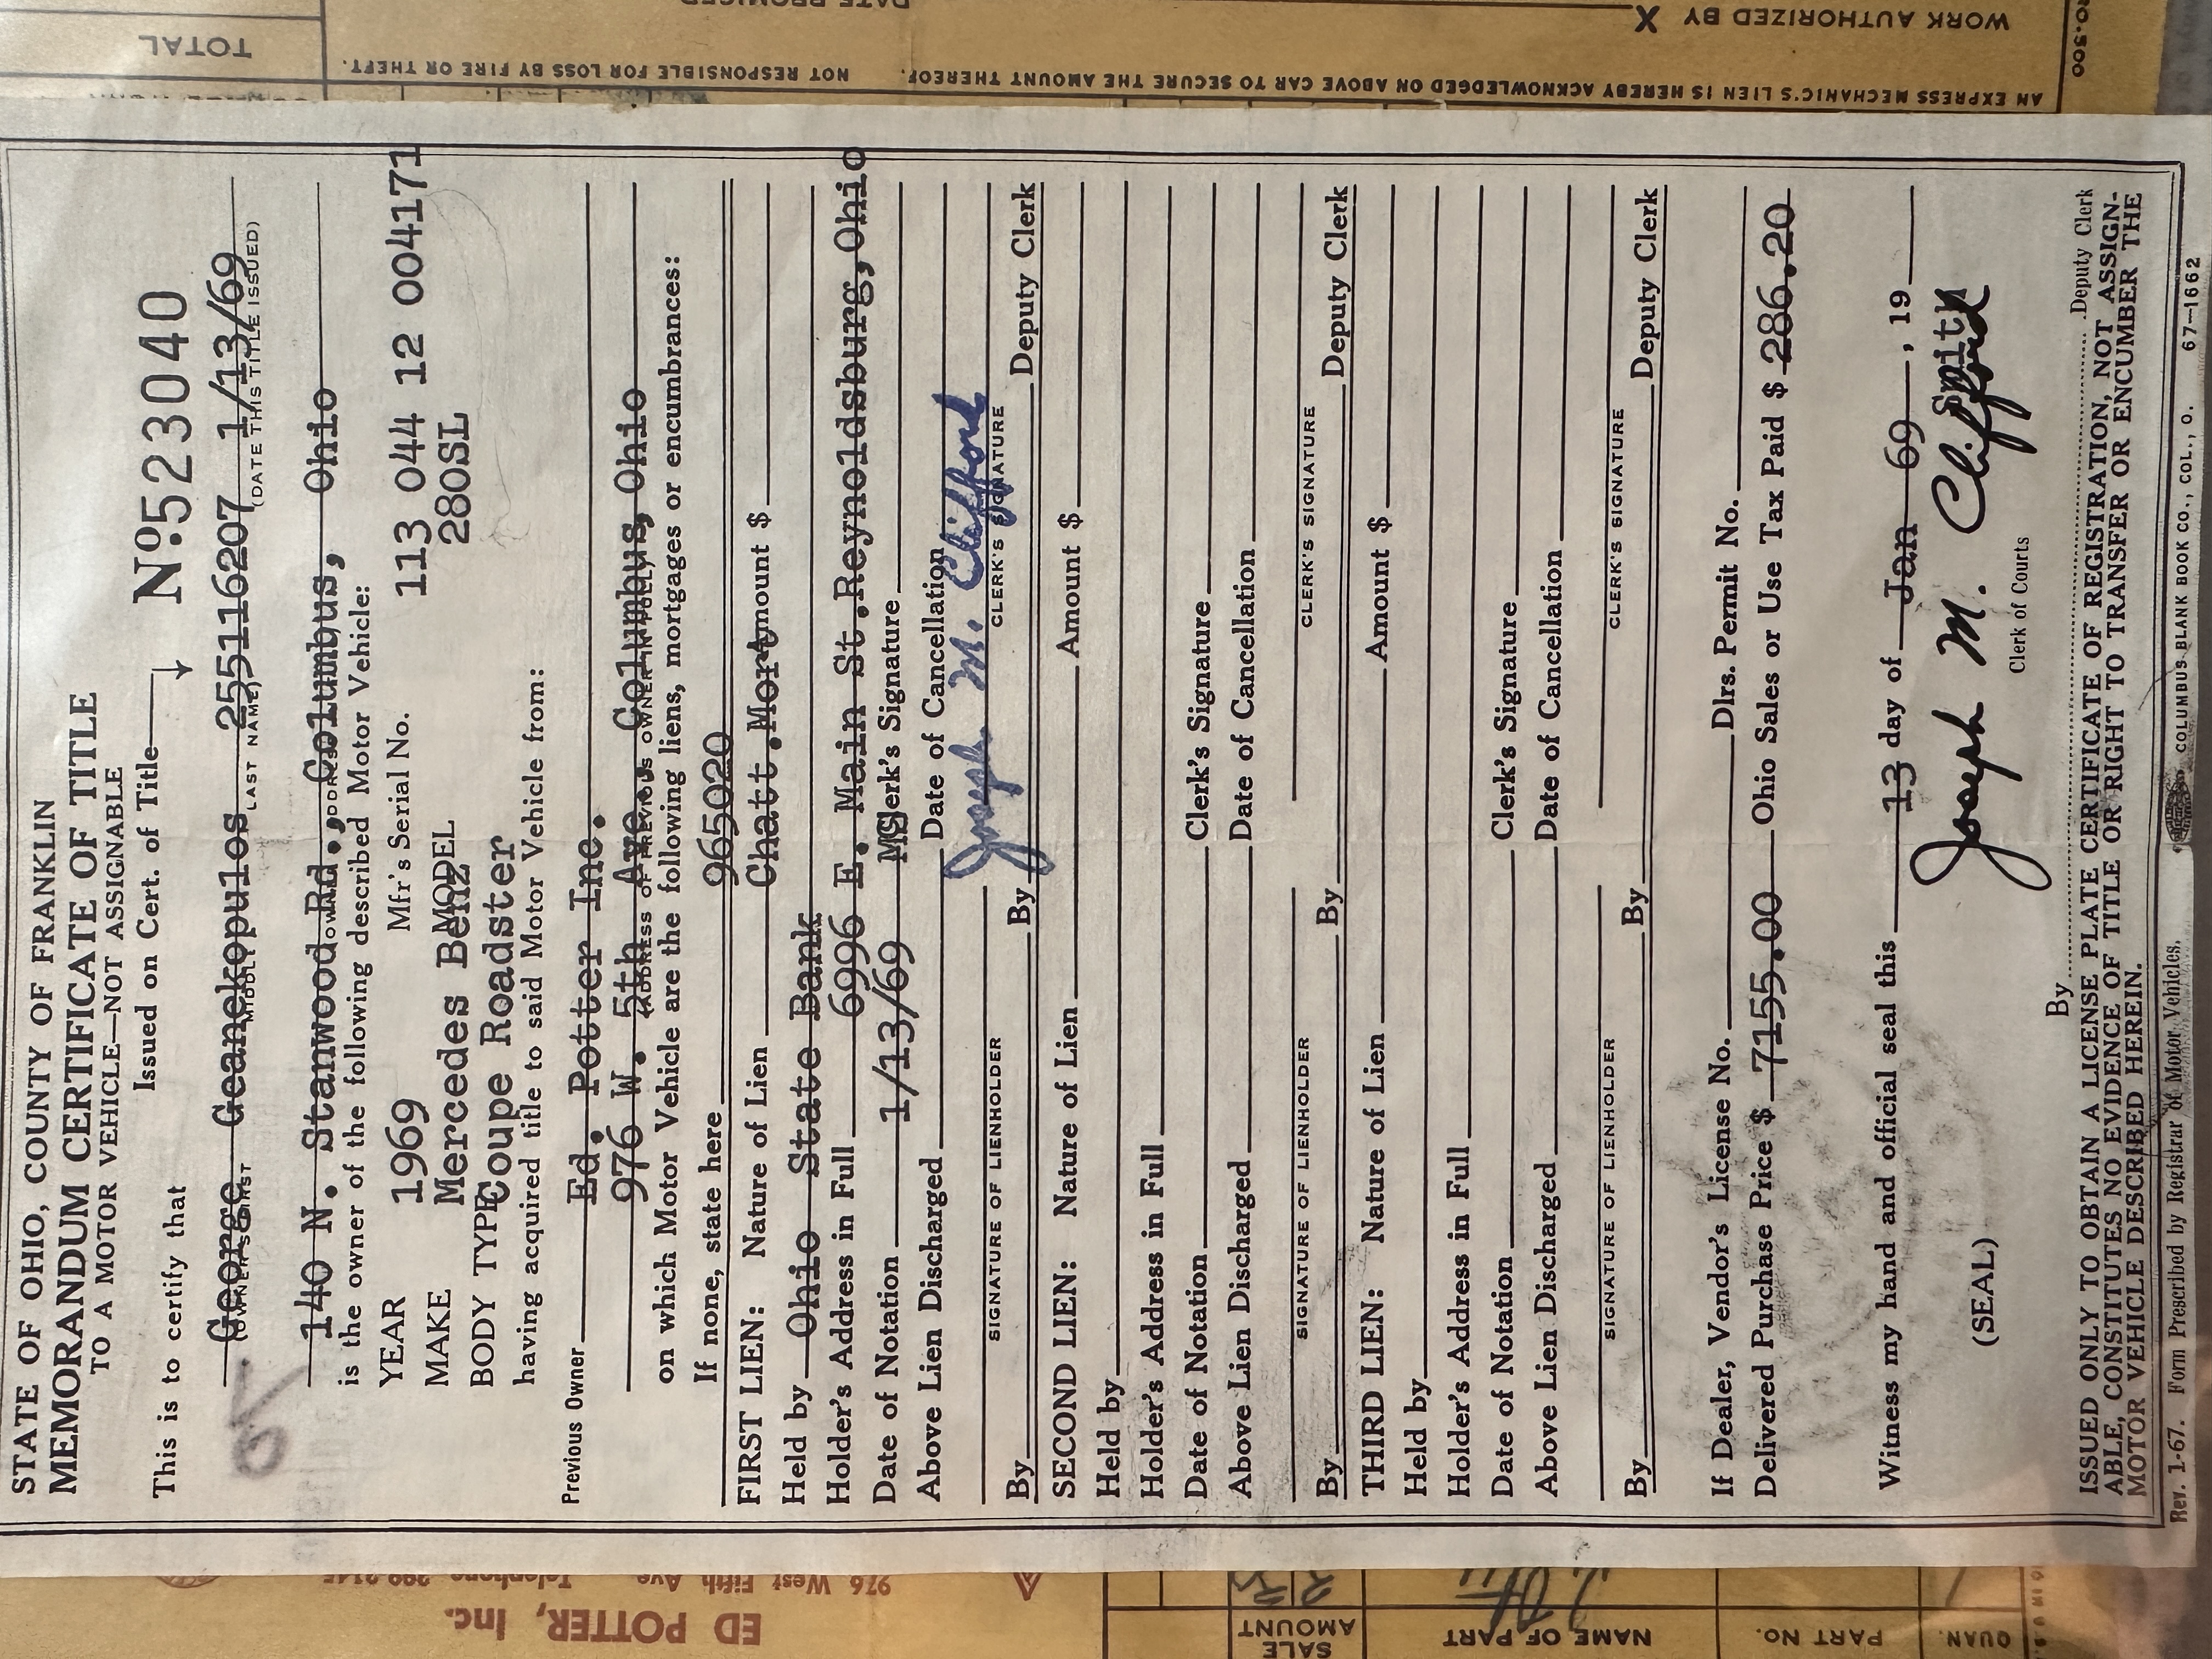 STATE OF OHIO, COUNTY OF FRANKLIN
MEMORANDUM CERTIFICATE OF TITLE
TO A MOTOR VEHICLE—NOT ASSIGNABLE
Issued on Cert. of Title
This is to certify that No. 523040
George Geanekopulos 255116207 1/13/69
(OWNER'S FIRST MIDDLE LAST NAME) (DATE THIS TITLE ISSUED)
140 N. Stanwood Rd., Columbus, Ohio
is the owner of the following described Motor Vehicle:
YEAR 1969 Mfr's Serial No. 113 044 12 004171
MAKE Mercedes Benz MODEL 280SL
BODY TYPE Coupe Roadster
having acquired title to said Motor Vehicle from:
Previous Owner Ed. Potter Inc.
976 W. 5th Ave. Columbus, Ohio
(ADDRESS OF PREVIOUS OWNER IN FULL)
on which Motor Vehicle are the following liens, mortgages or encumbrances:
If none, state here 965020
FIRST LIEN: Nature of Lien Chatt.Mort Amount $
Held by Ohio State Bank
Holder's Address in Full 6996 E. Main St.Reynoldsburg,Ohio
Date of Notation 1/13/69 Clerk's Signature
Above Lien Discharged Date of Cancellation
Joseph M. Clifford
SIGNATURE OF LIENHOLDER CLERK'S SIGNATURE
By By Deputy Clerk
SECOND LIEN: Nature of Lien Amount $
Held by
Holder's Address in Full
Date of Notation Clerk's Signature
Above Lien Discharged Date of Cancellation
SIGNATURE OF LIENHOLDER CLERK'S SIGNATURE
By By Deputy Clerk
THIRD LIEN: Nature of Lien Amount $
Held by
Holder's Address in Full
Date of Notation Clerk's Signature
Above Lien Discharged Date of Cancellation
SIGNATURE OF LIENHOLDER CLERK'S SIGNATURE
By By Deputy Clerk
If Dealer, Vendor's License No. Dlrs. Permit No.
Delivered Purchase Price $ 7155.00 Ohio Sales or Use Tax Paid $ 286.20
Witness my hand and official seal this 13 day of Jan 69, 19
Joseph M. Clifford
(SEAL) Clerk of Courts
By Deputy Clerk
ISSUED ONLY TO OBTAIN A LICENSE PLATE CERTIFICATE OF REGISTRATION, NOT ASSIGN-
ABLE, CONSTITUTES NO EVIDENCE OF TITLE OR RIGHT TO TRANSFER OR ENCUMBER THE
MOTOR VEHICLE DESCRIBED HEREIN.
Rev. 1-67. Form Prescribed by Registrar of Motor Vehicles. COLUMBUS BLANK BOOK CO., COL., O. 67-1662
ED POTTER, Inc.
976 West Fifth Ave Telephone
QUAN. PART NO. NAME OF PART SALE AMOUNT
AN EXPRESS MECHANIC'S LIEN IS HEREBY ACKNOWLEDGED ON ABOVE CAR TO SECURE THE AMOUNT THEREOF. NOT RESPONSIBLE FOR LOSS BY FIRE OR THEFT.
WORK AUTHORIZED BY X
DATE PROMISED
TOTAL